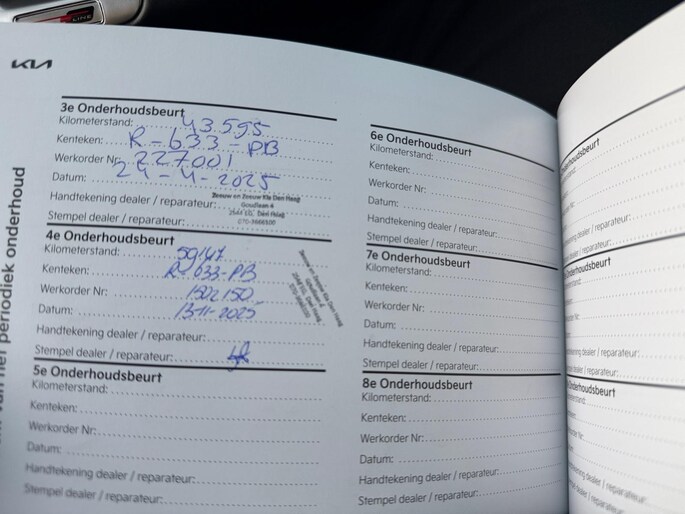 KIA
3e Onderhoudsbeurt
Kilometerstand: 43.595
Kenteken: R-633-PB
Werkorder Nr: 227001
Datum: 24-4-2025
Handtekening dealer / reparateur:
Stempel dealer / reparateur:
Zeeuw en Zeeuw Kia Den Haag
Goudlaan 4
070-3668500
4e Onderhoudsbeurt
Kilometerstand:
Kenteken: R-633-PB
Werkorder Nr: 1502150
Datum: 13-11-2025
Handtekening dealer / reparateur:
Stempel dealer / reparateur:
5e Onderhoudsbeurt
Kilometerstand:
Kenteken:
Werkorder Nr:
Datum:
Handtekening dealer / reparateur:
Stempel dealer / reparateur:
6e Onderhoudsbeurt
Kilometerstand:
Kenteken:
Werkorder Nr:
Datum:
Handtekening dealer / reparateur:
Stempel dealer / reparateur:
7e Onderhoudsbeurt
Kilometerstand:
Kenteken:
Werkorder Nr:
Datum:
Handtekening dealer / reparateur:
Stempel dealer / reparateur:
8e Onderhoudsbeurt
Kilometerstand:
Kenteken:
Werkorder Nr:
Datum:
Handtekening dealer / reparateur:
Stempel dealer / reparateur:
periodiek onderhoud